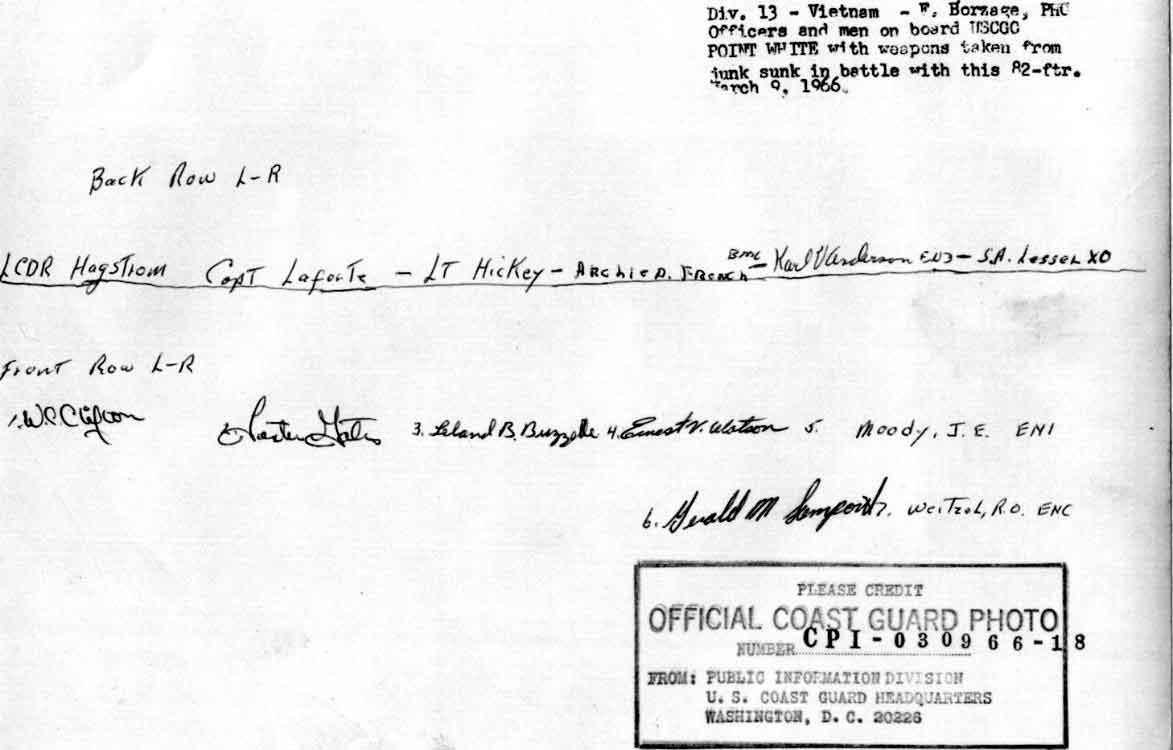 Div. 13 - Vietnam - F. Borzage, PHC
Officers and men on board USCGC
POINT WHITE with weapons taken from
junk sunk in battle with this 82-ftr.
March 9, 1966.
Back Row L-R
LCDR Hagstrom Capt Lafonte - LT Hickey - Archie D. French BMC - Karl Vanderson EN3 - S.A. Lesser XO
Front Row L-R
1. W.C. Clifton 2. Gates 3. Leland B. Buzzelle 4. Ernest V. Watson 5. Moody, J.E. EN1
6. Gerald M 7. Weitzel, R.O. ENC
PLEASE CREDIT
OFFICIAL COAST GUARD PHOTO
NUMBER CPI-030966-18
FROM: PUBLIC INFORMATION DIVISION
U. S. COAST GUARD HEADQUARTERS
WASHINGTON, D. C. 20226